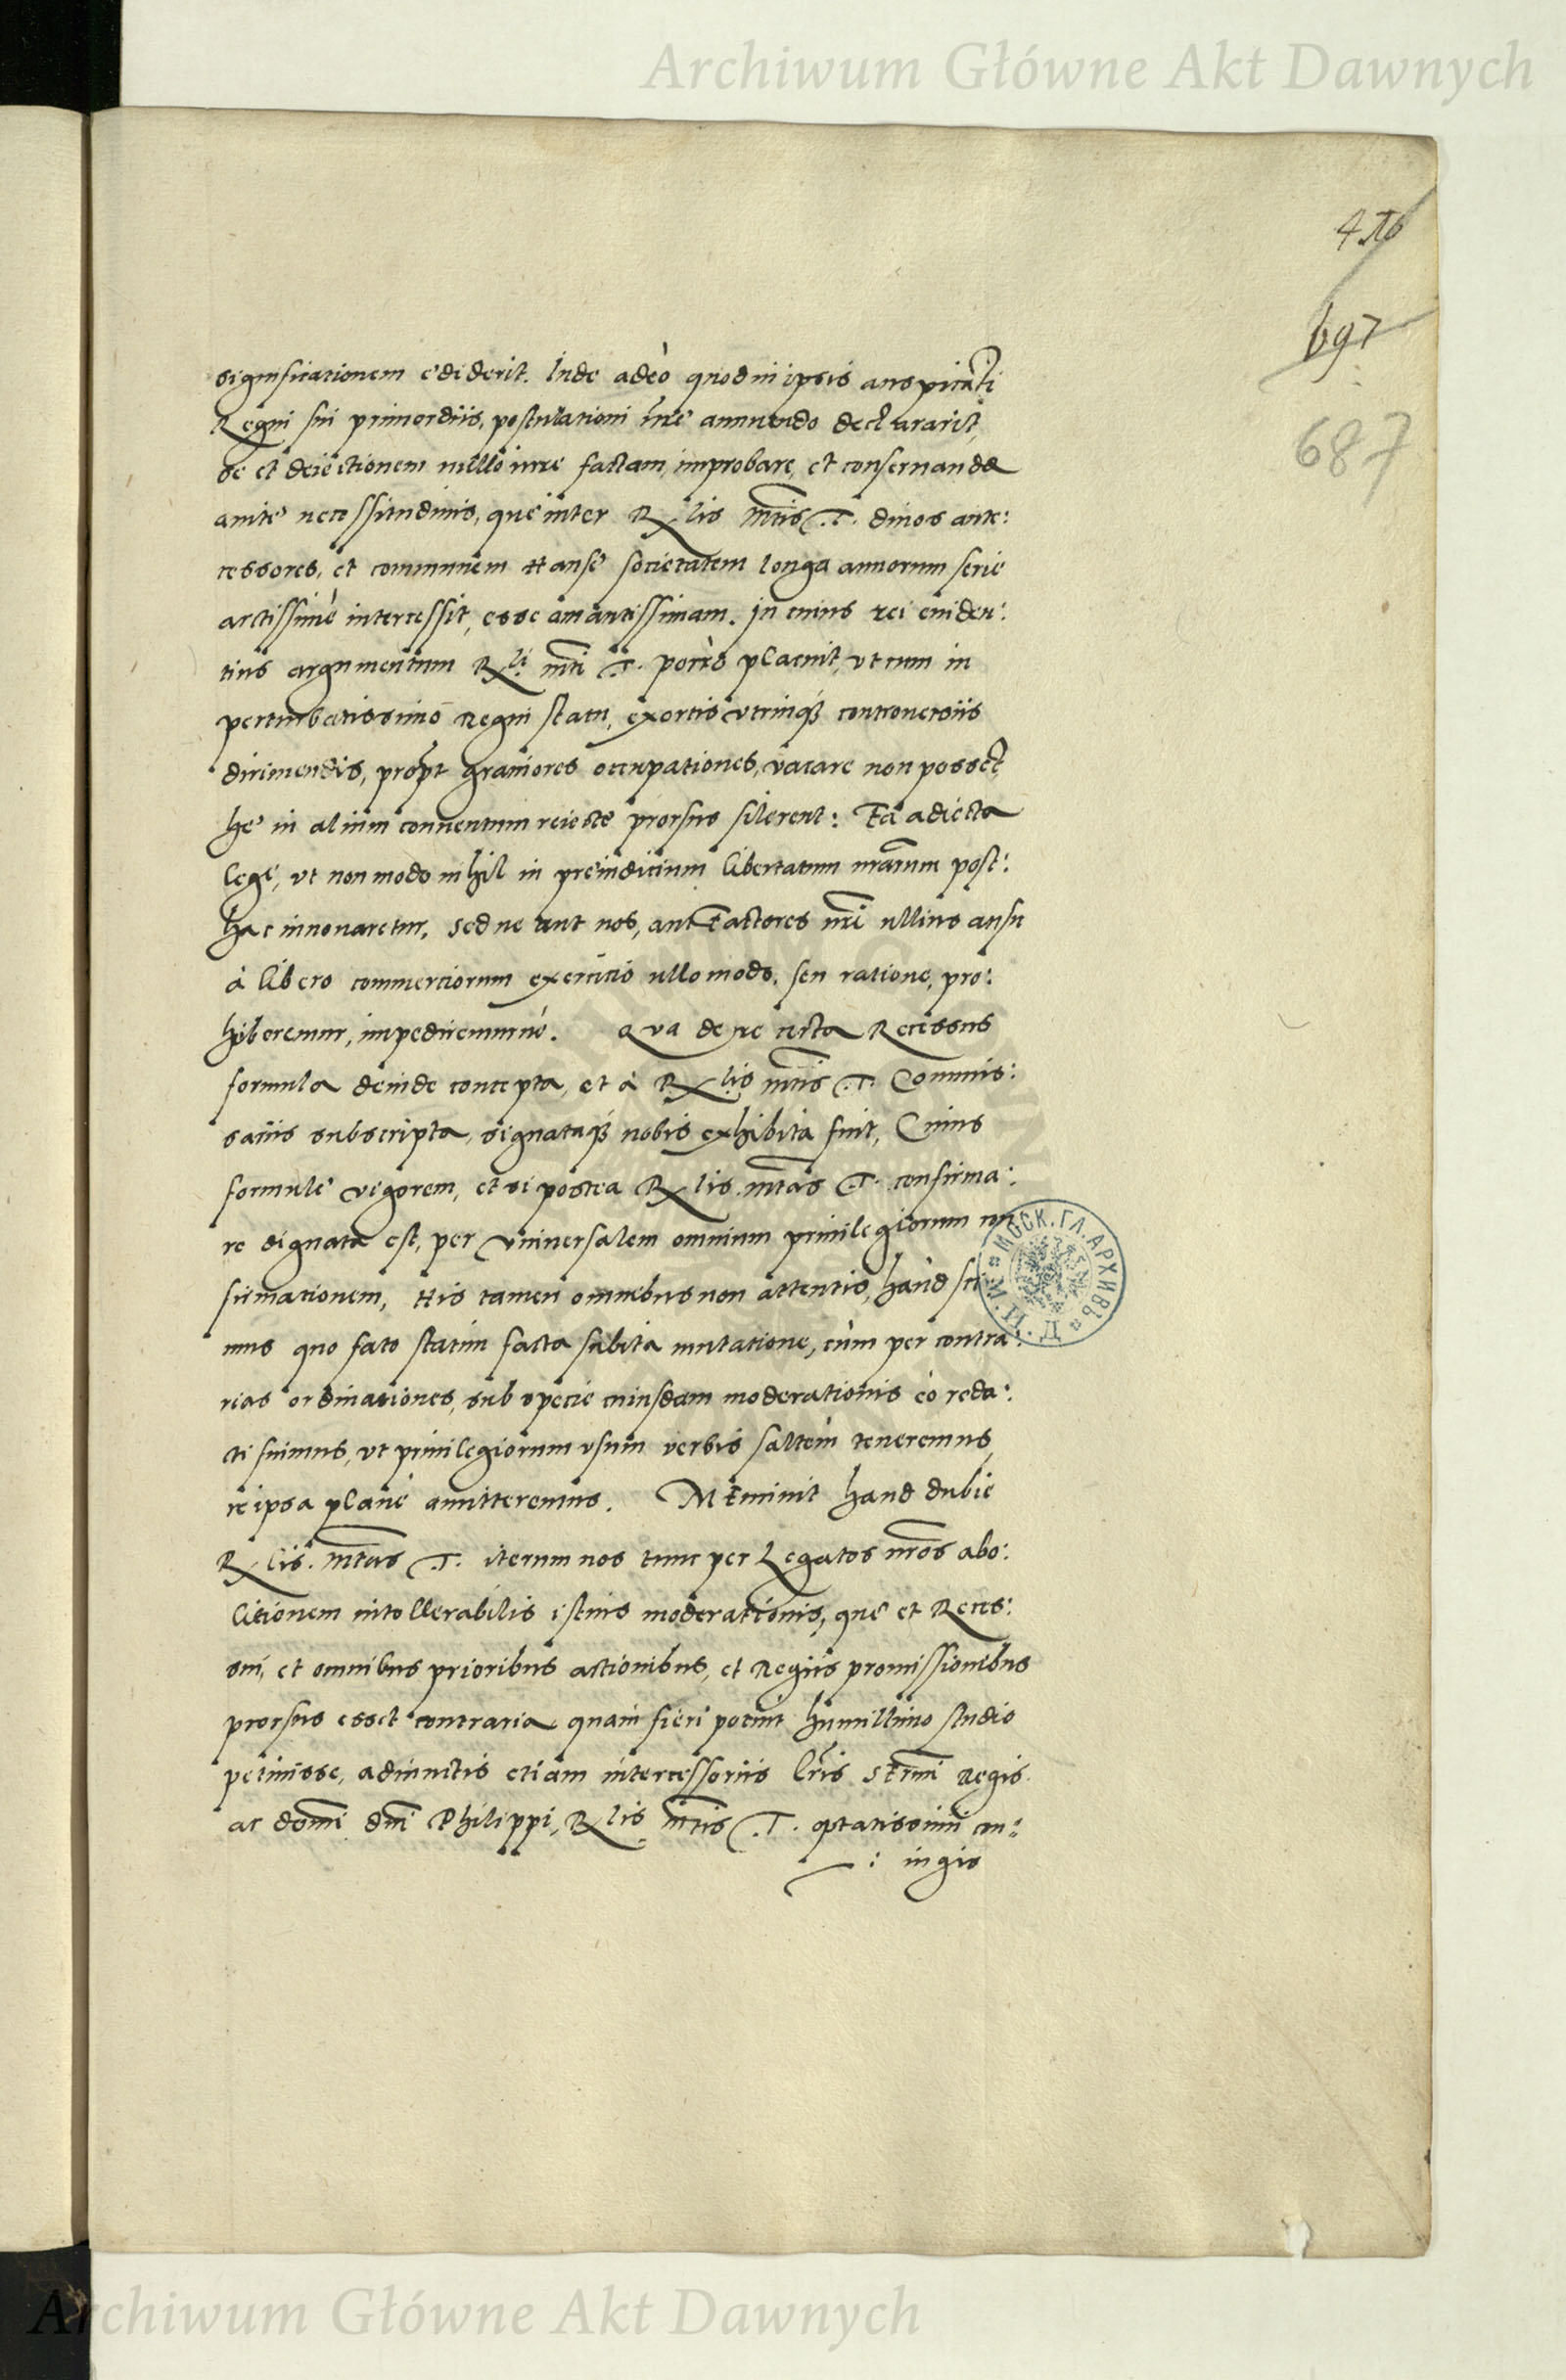 Archiwum Główne Akt Dawnych
697
687
significationem ediderit. Inde adeò quod in ipsis auspicati
Regni sui primordiis, postulationi nr̃e annuendo declararit,
se et deiectionem nullo iure factam, improbare, et conseruandę
auitę necessitudinis, quę inter Rx lis mtis T. diuos ante:
cessores, et communem Hansę societatem longa annorum serie
arctissimè intercessit, esse amantissimam. In cuius rei euiden:
tius argumentum Rx li mti T. porrò placuit, vt cum in
perturbatissimo Regni statu, exortis vtrinqꝫ controuersiis
dirimendis, propt̃ grauiores occupationes, vacare non posset,
hę in alium conuentum reiectę prorsus silerent: Ea adiecta
lege, vt non modo nihil in pręiudicium libertatum nr̃arum post:
hac innouaretur, sed ne aut nos, aut Factores nr̃i ullius ausu
à libero commerciorum exercitio ullo modo, seu ratione, pro:
hiberemur, impediremurue. Qua de re certa Recessus
formula deinde concepta, et à Rx lis mtis T. Commis:
sariis subscripta, signataqꝫ nobis exhibita fuit, Cuius
formulę vigorem, etsi postea Rx lis mtas T. confirma:
re dignata est, per vniuersalem omnium priuilegiorum
firmationem, His tamen omnibus non attentis, haud sci
mus quo fato statim facta subita mutatione, cùm per contra:
rias ordinationes, sub specie cuiusdam moderationis eò reda:
cti fuimus, vt priuilegiorum vsum verbis saltem teneremus,
re ipsa planè amitteremus. Meminit haud dubiè
Rx lis. mtas T. iterum nos tunc per Legatos nr̃os abo:
litionem intollerabilis istius moderationis, quę et Reces:
sui, et omnibus prioribus actionibus, et Regiis promissionibus
prorsus esset contraria quam fieri potuit humillimo studio
petiuisse, adiunctis etiam intercessoriis lr̃is Serm̃i Regis
ac domi dni Philippi, Rx lis mtis T. optatissimi con:
: iugis
МОСК. ГЛ. АРХИВЪ
М. И. Д.
Archiwum Główne Akt Dawnych